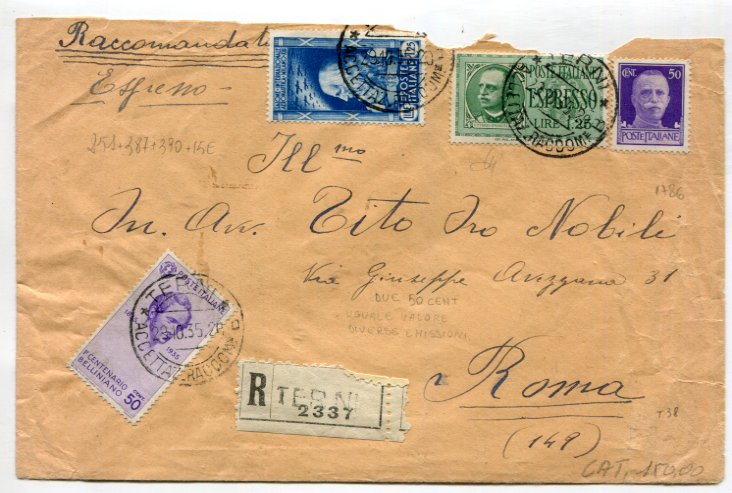 Raccomandata
Espresso
251+387+390+15E
POSTE ITALIANE
1,25
POSTE ITALIANE
ESPRESSO
LIRE 1,25
CENT. 50
POSTE ITALIANE
TERNI
ACCETTAZ. RACCOM
Ill mo
1786
In. Avv. Tito Oro Nobili
Via Giuseppe Avezzana 31
DUE 50 CENT
UGUALE VALORE
DIVERSE EMISSIONI
POSTE ITALIANE
1935
1° CENTENARIO
BELLINIANO
CENT 50
TERNI
ACCETTAZ. RACCOM
R TERNI
2337
Roma
(149)
T38
CAT. 150,00